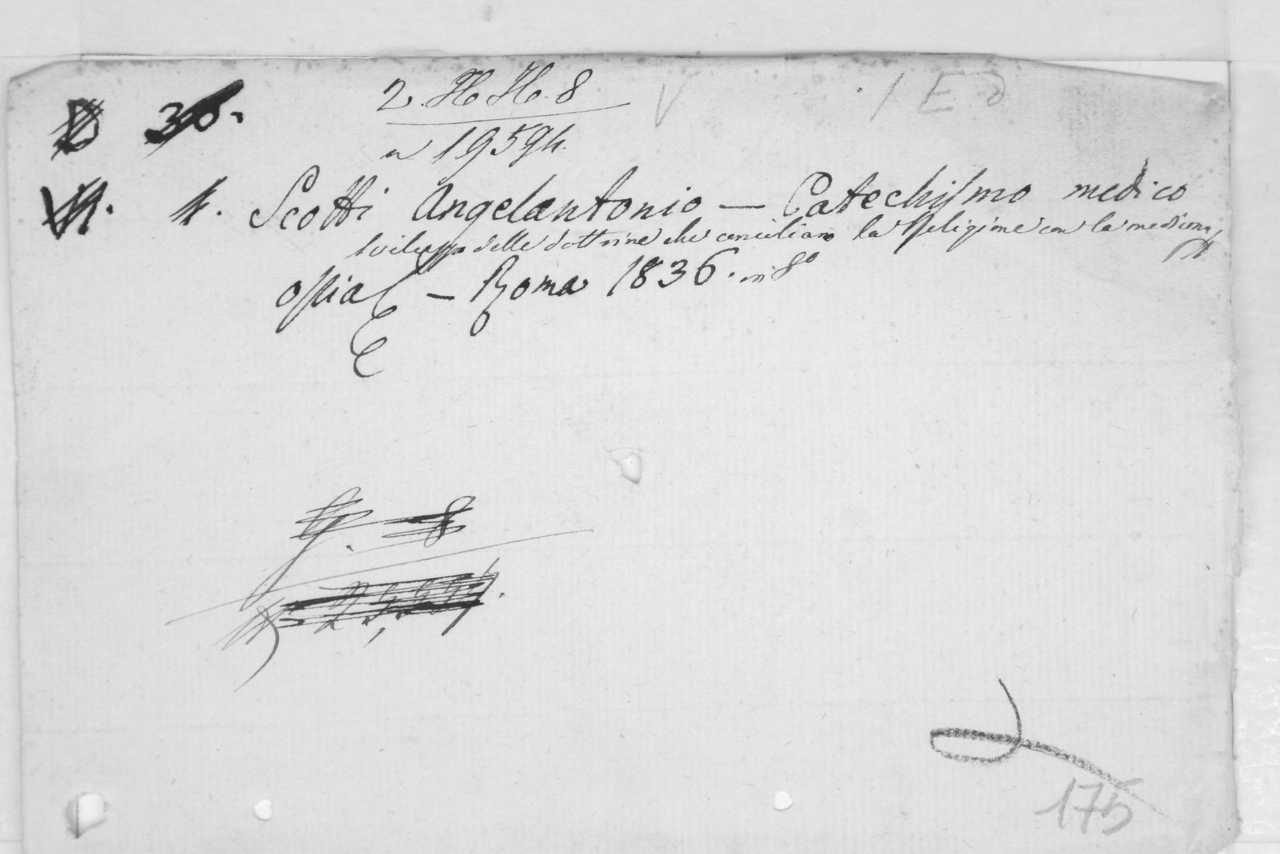 2. Ho Ho. 8
n 19594.
4. Scotti Angelantonio — Catechismo medico
sviluppo delle dottrine che conciliano la Religione con la medicina
ossia — Roma 1836. in 8º
G. 8
175